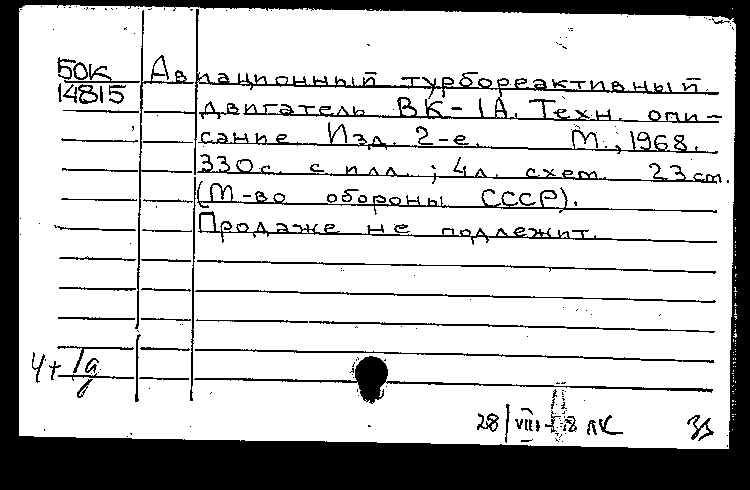 БОК
14815
Авиационный турбореактивный
двигатель ВК-1А. Техн. опи-
сание Изд. 2-е. М., 1968.
330с. с илл. ; 4л. схем. 23 см.
(М-во обороны СССР).
Продаже не подлежит.
Ч+1д
28/VIII- 8 ЛК